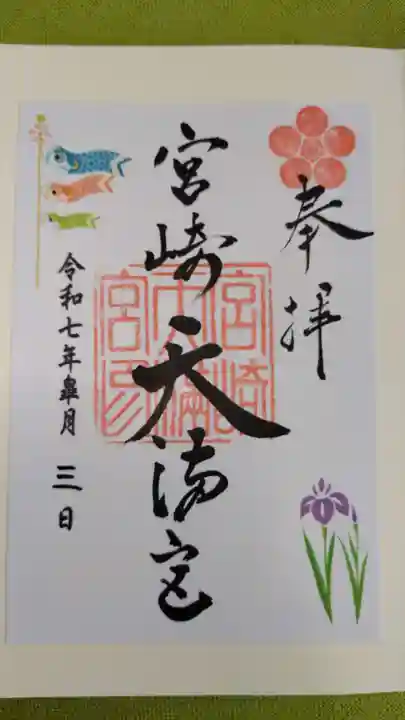 奉拝
宮崎天満宮
宮崎
天満
宮印
令和七年皐月三日